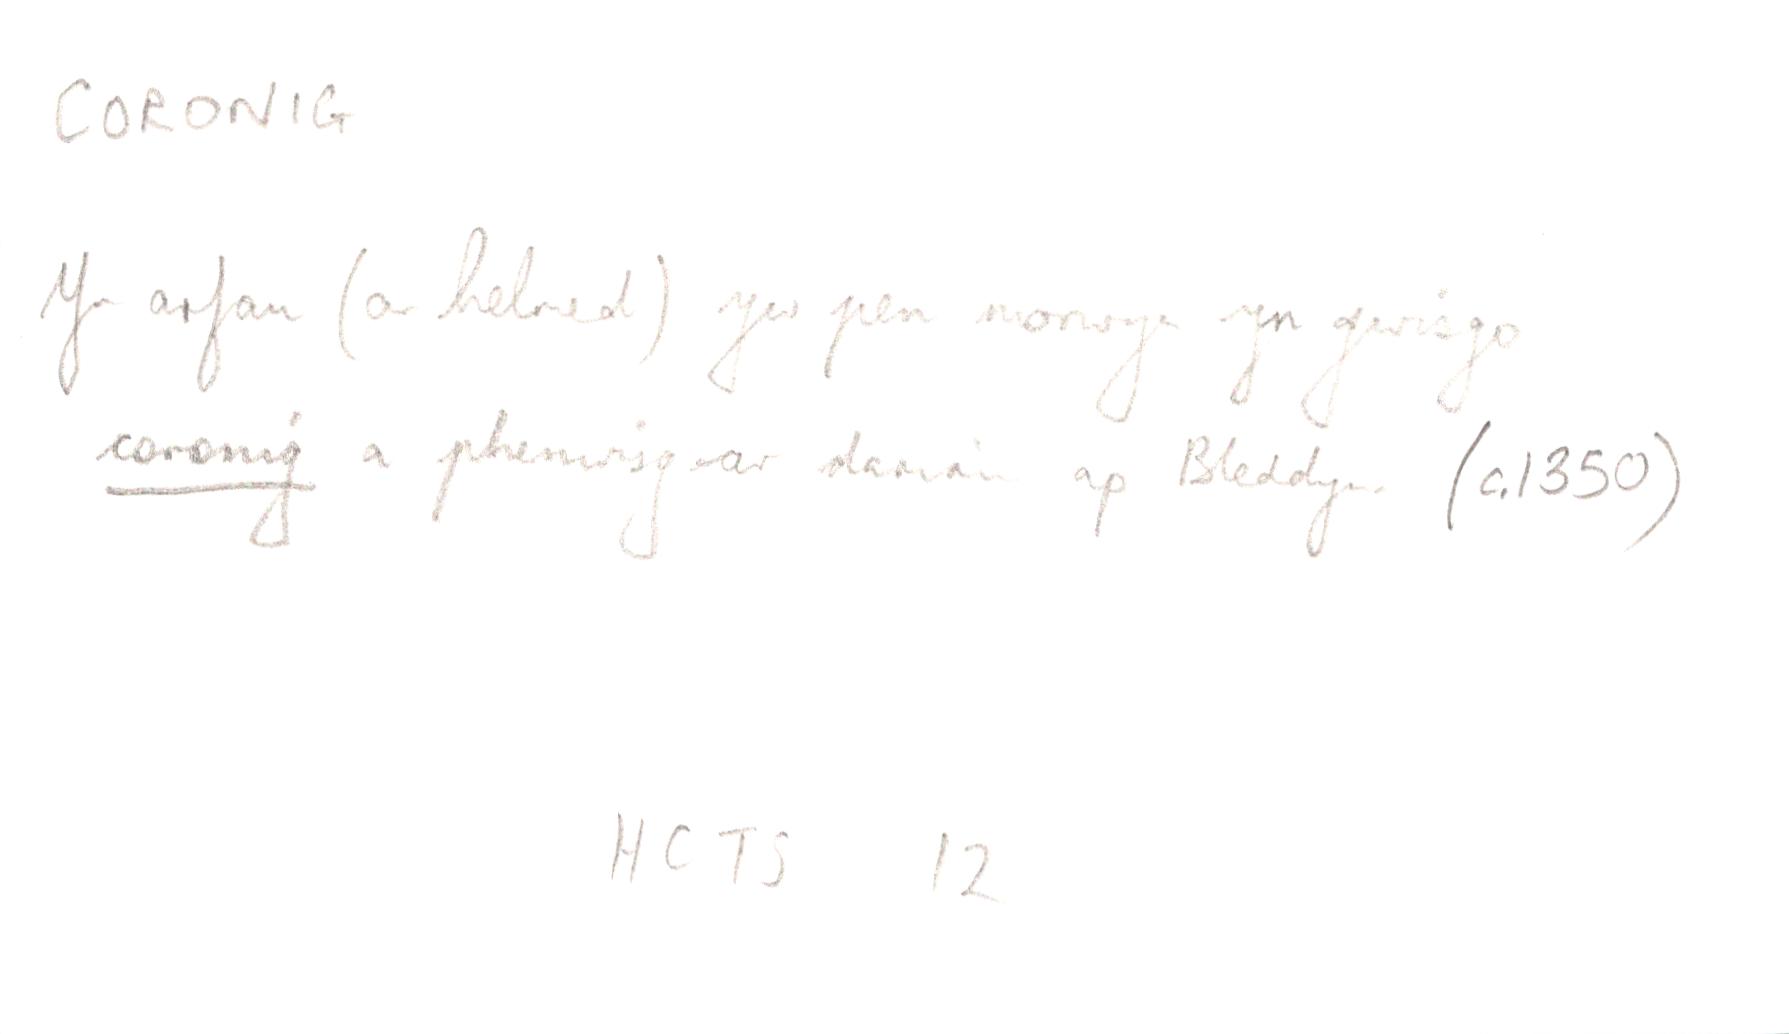 CORONIG
Yr arfau (ar helmed) yw pen morwyn yn gwisgo
coronig a phenwisg ar darian ap Bleddyn (c.1350)
HCTS 12